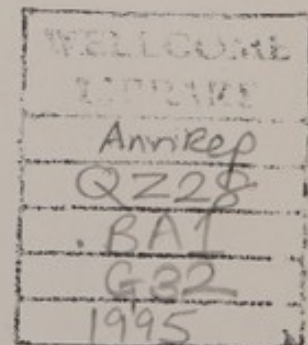 WELLCOME
LIBRARY
AnnRep
QZ28
.BA1
G32
1995